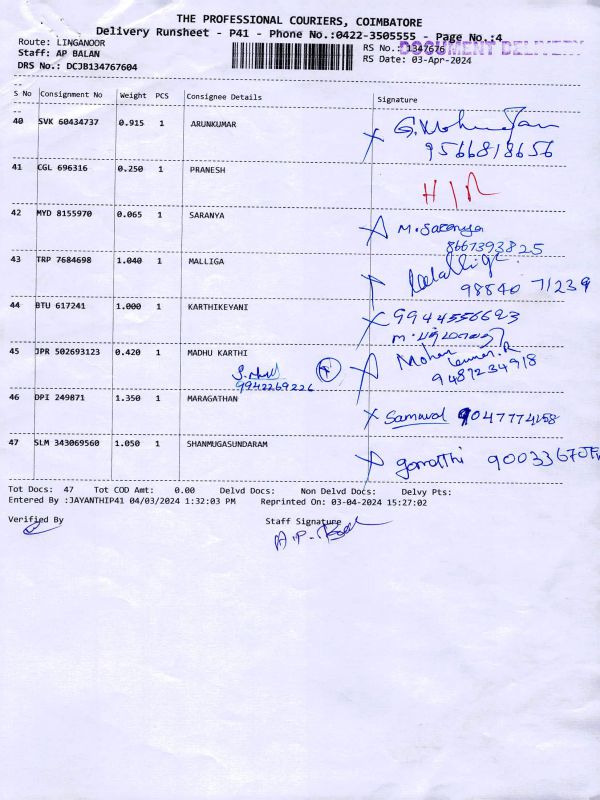 THE PROFESSIONAL COURIERS, COIMBATORE
Delivery Runsheet - P41 - Phone No.:0422-3505555 - Page No.:4
Route: LINGANOOR
RS No. :1347676
DOCUMENT DELIVERY
Staff: AP BALAN
RS Date: 03-Apr-2024
DRS No.: DCJB134767604
S No Consignment No Weight PCS Consignee Details Signature
40 SVK 60434737 0.915 1 ARUNKUMAR
9566818656
41 CGL 696316 0.250 1 PRANESH
H/R
42 MYD 8155970 0.065 1 SARANYA M. Saranya
8667393825
43 TRP 7684698 1.040 1 MALLIGA
98840 71239
44 BTU 617241 1.000 1 KARTHIKEYANI 9944556693
45 JPR 502693123 0.420 1 MADHU KARTHI Mohan Kumar. R
9942269226 9487234918
46 DPI 249871 1.350 1 MARAGATHAN
Samuval
47 SLM 343069560 1.050 1 SHANMUGASUNDARAM
gomathi
Tot Docs: 47 Tot COD Amt: 0.00 Delvd Docs: Non Delvd Docs: Delvy Pts:
Entered By :JAYANTHIP41 04/03/2024 1:32:03 PM Reprinted On: 03-04-2024 15:27:02
Verified By Staff Signature